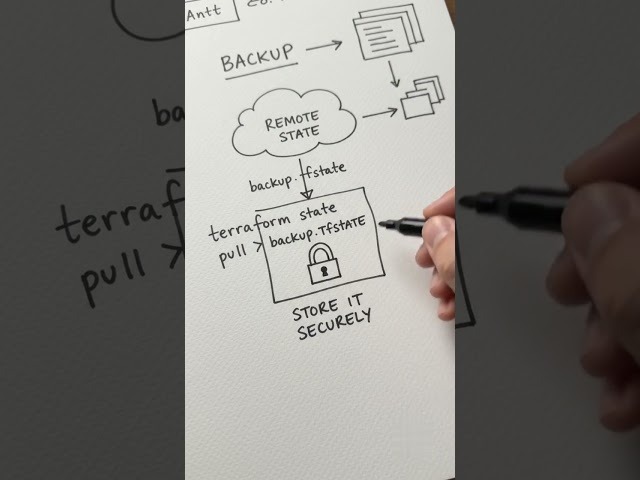 Antt
BACKUP
REMOTE
STATE
backup.tfstate
terraform state
pull > backup.TfSTATE
STORE IT
SECURELY